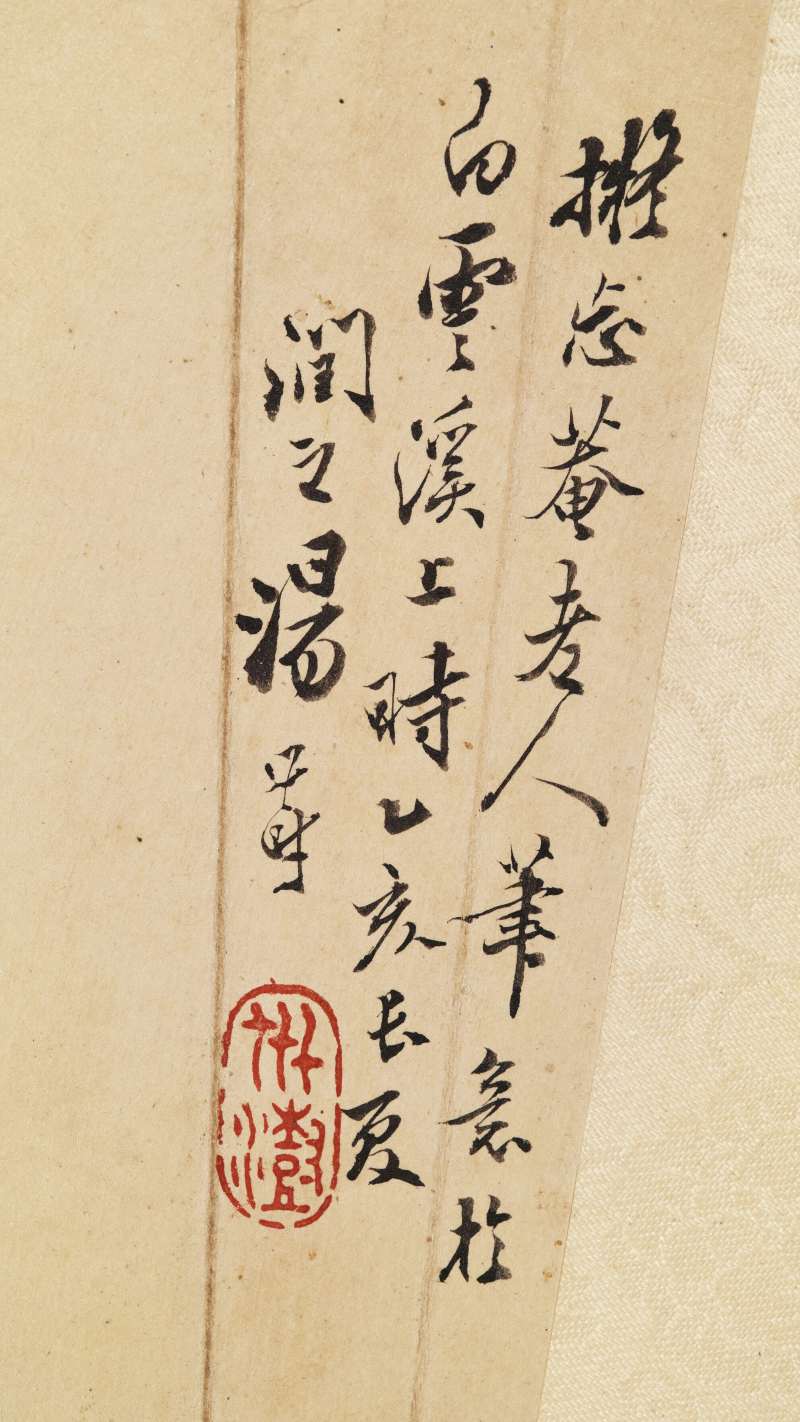 擬忘菴老人筆意於
白雲溪上時乙亥長夏
潤之湯世澍
世澍